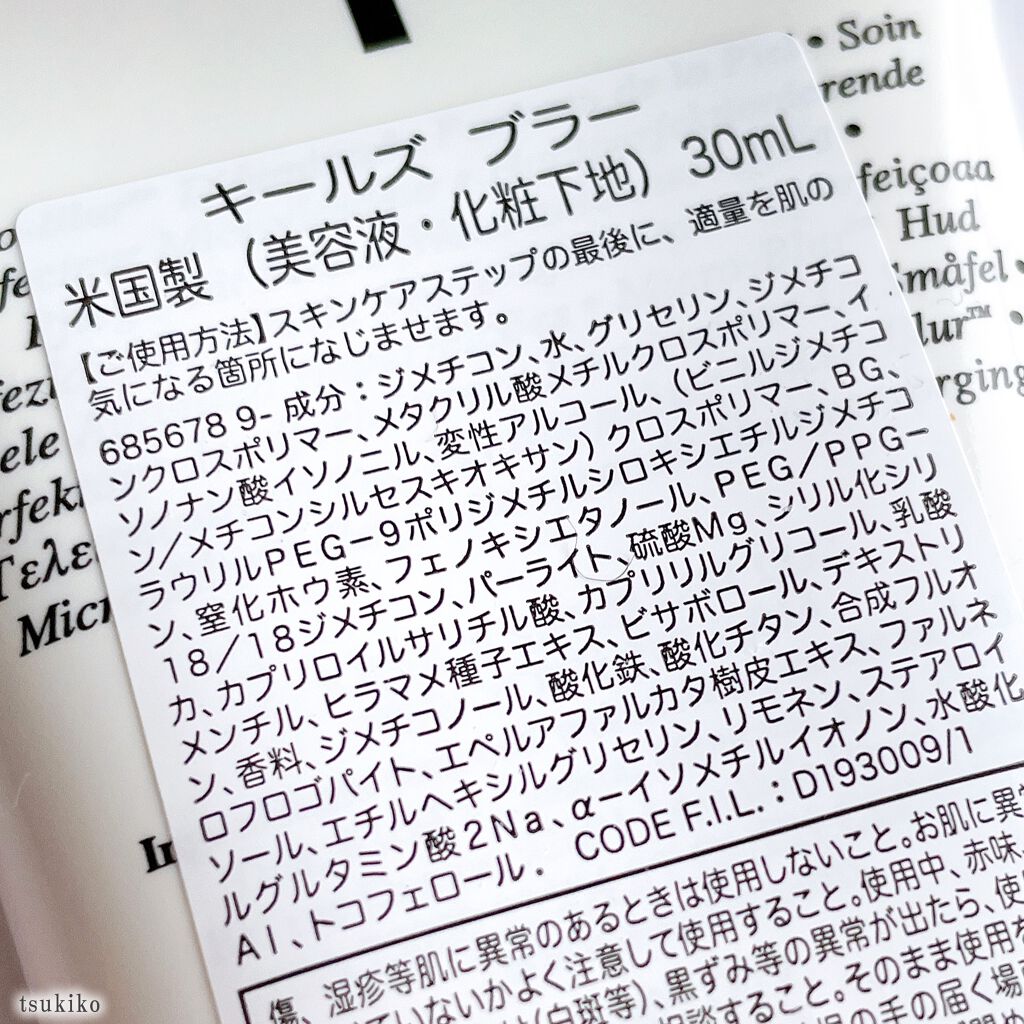 • Soin
rende
•
feiçoaa
Hud
Småfel •
lur™ •
rging
キールズ ブラー
米国製 (美容液・化粧下地) 30mL
【ご使用方法】スキンケアステップの最後に、適量を肌の
気になる箇所になじませます。
685678 9- 成分：ジメチコン、水、グリセリン、ジメチコ
ンクロスポリマー、メタクリル酸メチルクロスポリマー、イ
ソノナン酸イソノニル、変性アルコール、(ビニルジメチコ
ン/メチコンシルセスキオキサン)クロスポリマー、BG、
ラウリルPEG-9ポリジメチルシロキシエチルジメチコ
ン、窒化ホウ素、フェノキシエタノール、PEG/PPG-
18/18ジメチコン、パーライト、硫酸Mg、シリル化シリ
カ、カプリロイルサリチル酸、カプリリルグリコール、乳酸
メンチル、ヒラマメ種子エキス、ビサボロール、デキストリ
ン、香料、ジメチコノール、酸化鉄、酸化チタン、合成フルオ
ロフロゴパイト、エペルアファルカタ樹皮エキス、ファルネ
ソール、エチルヘキシルグリセリン、リモネン、ステアロイ
ルグルタミン酸2Na、α-イソメチルイオノン、水酸化
Al、トコフェロール. CODE F.I.L.：D193009/1
傷、湿疹等肌に異常のあるときは使用しないこと。お肌に異常
ていないかよく注意して使用すること。使用中、赤味、
(白斑等)、黒ずみ等の異常が出たら、使
相談すること。そのまま使用を
の手の届く場
ele
rfekt
Τελε
Micr
In
tsukiko